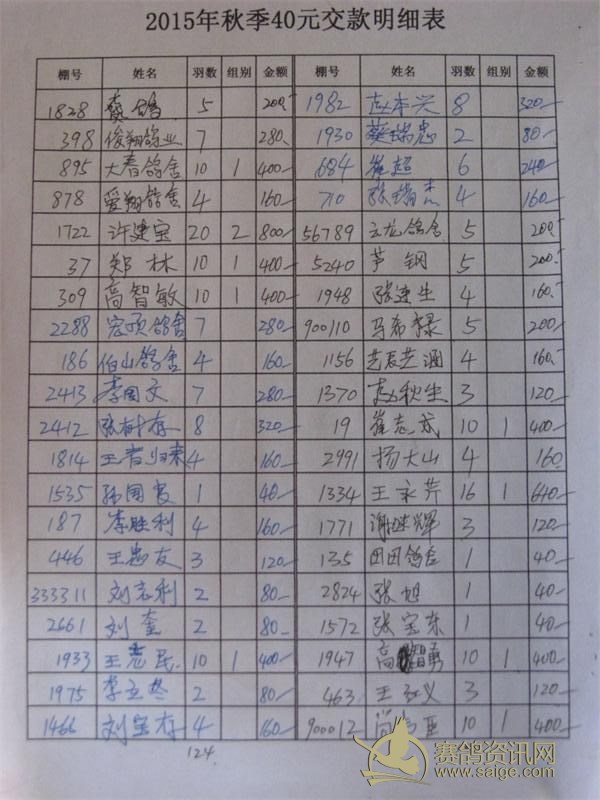 2015年秋季40元交款明细表
棚号 姓名 羽数 组别 金额 棚号 姓名 羽数 组别 金额
1828 鸽 5 200.- 1982 赵本兴 8 320-
398 俊翔鸽业 7 280. 1930 蔡瑞忠 2 80-
895 大春鸽舍 10 1 400- 684 崔超 6 240-
878 爱翔鸽舍 4 160 710 张瑞杰 4 160-
1722 许建宝 20 2 800- 56789 云龙鸽舍 5 200.-
37 郑林 10 1 400- 5240 芦钢 5 200.-
309 高智敏 10 1 400- 1948 张连生 4 160.-
2288 宏硕鸽舍 7 280- 900110 马希禄 5 200-
186 伯山鸽舍 4 160- 1156 艺涵 4 160.-
2413 李国文 7 280- 1370 赵秋生 3 120-
2412 张树存 8 320. 19 崔志武 10 1 400-
1814 王者归来 4 160 2991 杨大山 4 160
1535 孙国 1 40- 1334 王永芹 16 1 640-
187 李胜利 4 160- 1771 谢继辉 3 120-
446 王忠友 3 120- 135 田田鸽舍 1 40-
333311 刘志利 2 80- 2824 张旭 1 40-
2661 刘奎 2 80- 1572 张宝东 1 40
1933 王志民 10 1 400- 1947 高智勇 10 1 400-
1975 李立冬 2 80- 463 王义 3 120-
1466 刘宝存 4 160 900012 尚 10 1 400-
124
赛鸽资讯网
www.saige.com